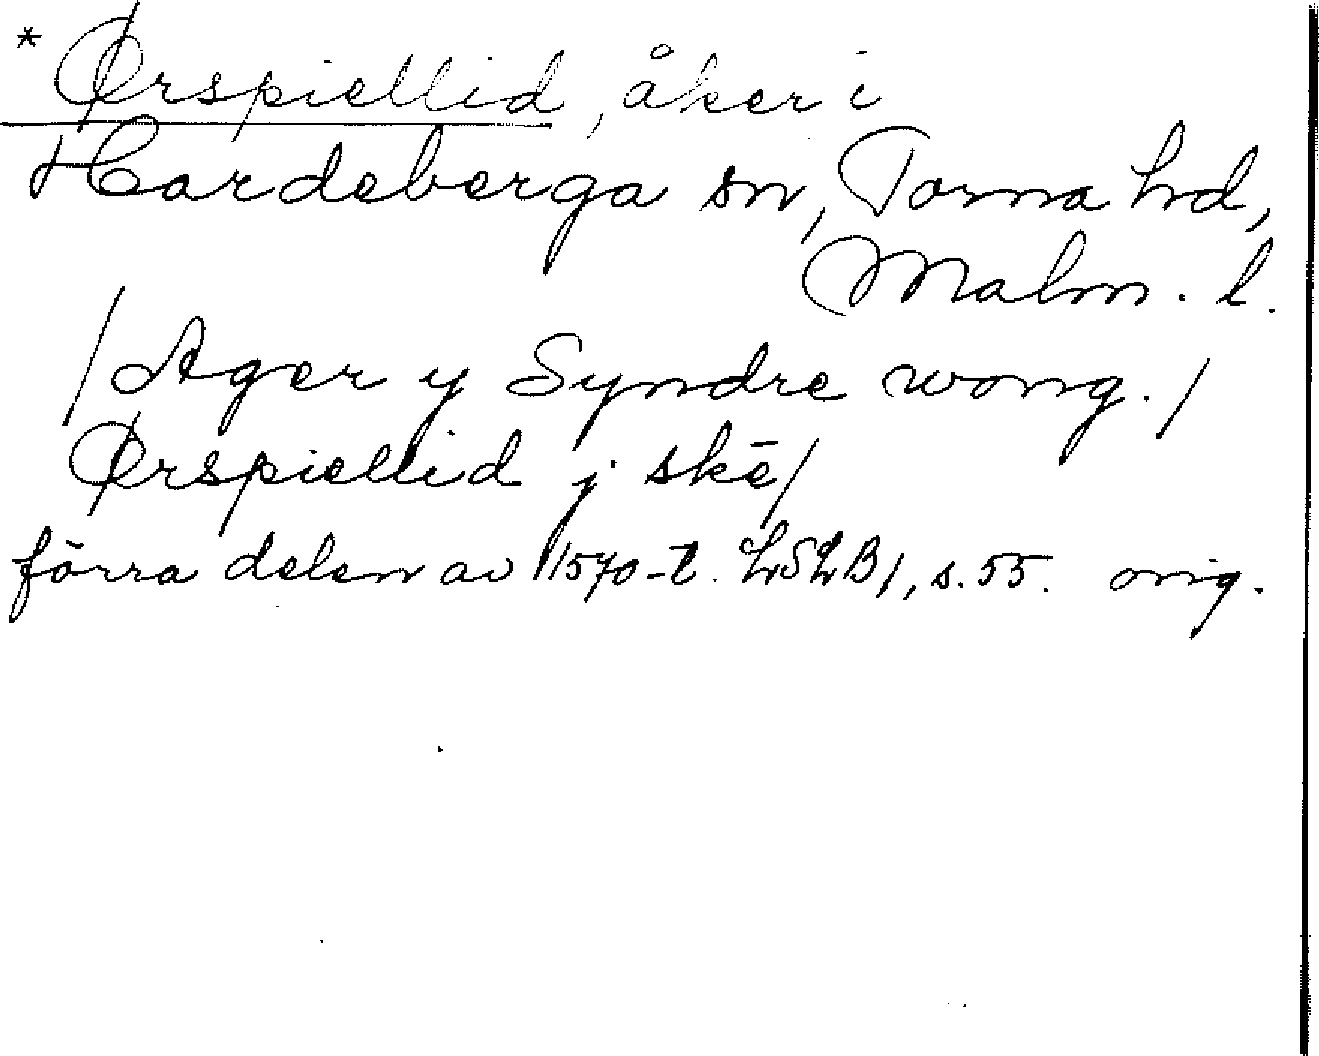 * Ørspiellid, åker i
Hardeberga sn, Torna hrd,
Malm. l.
/Ager y Syndre wong./
Ørspiellid j skē/
förra delen av 1570-t. LSLB1, s. 55. orig.